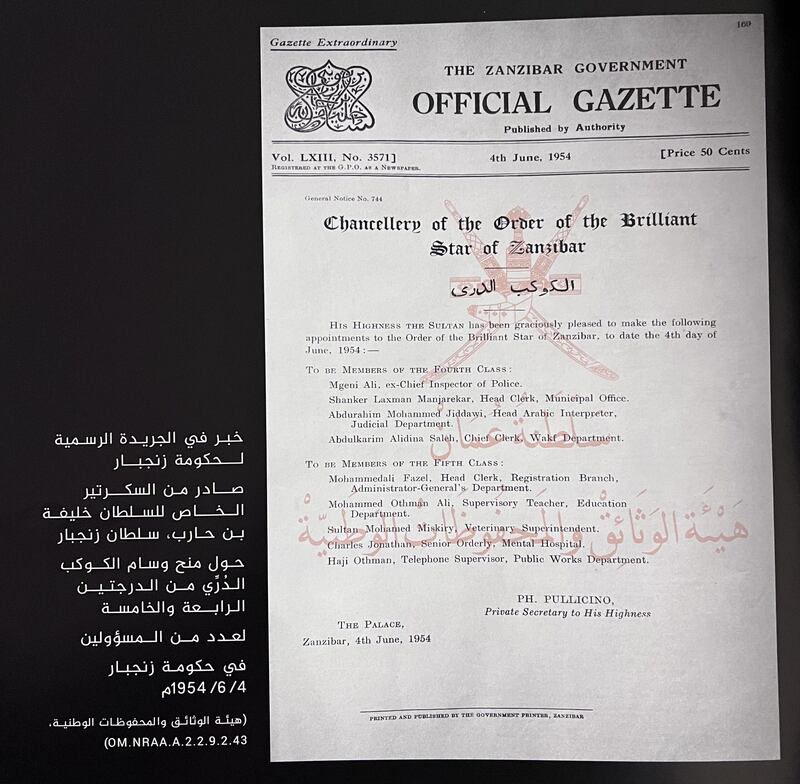 169
Gazette Extraordinary
THE ZANZIBAR GOVERNMENT
OFFICIAL GAZETTE
Published by Authority
Vol. LXIII, No. 3571]
4th June, 1954
[Price 50 Cents
REGISTERED AT THE G.P.O. AS A NEWSPAPER.
General Notice No. 744
Chancellery of the Order of the Brilliant
Star of Zanzibar
الكوكب الدرى
HIS HIGHNESS THE SULTAN has been graciously pleased to make the following
appointments to the Order of the Brilliant Star of Zanzibar, to date the 4th day of
June, 1954:—
TO BE MEMBERS OF THE FOURTH CLASS:
Mgeni Ali, ex-Chief Inspector of Police.
Shanker Laxman Manjarekar, Head Clerk, Municipal Office.
Abdurahim Mohammed Jiddawi, Head Arabic Interpreter,
Judicial Department.
Abdulkarim Alidina Saleh, Chief Clerk, Wakf Department.
TO BE MEMBERS OF THE FIFTH CLASS:
Mohammedali Fazel, Head Clerk, Registration Branch,
Administrator-General's Department.
Mohammed Othman Ali, Supervisory Teacher, Education
Department.
Sultan Mohamed Miskiry, Veterinary Superintendent.
Charles Jonathan, Senior Orderly, Mental Hospital.
Haji Othman, Telephone Supervisor, Public Works Department.
PH. PULLICINO,
Private Secretary to His Highness
THE PALACE,
Zanzibar, 4th June, 1954
PRINTED AND PUBLISHED BY THE GOVERNMENT PRINTER, ZANZIBAR
سلطنة عمان
هيئة الوثائق والمحفوظات الوطنية
خبر في الجريدة الرسمية
لحكومة زنجبار
صادر من السكرتير
الخاص للسلطان خليفة
بن حارب، سلطان زنجبار
حول منح وسام الكوكب
الدُرِّي من الدرجتين
الرابعة والخامسة
لعدد من المسؤولين
في حكومة زنجبار
4/ 6/ 1954م
(هيئة الوثائق والمحفوظات الوطنية،
OM.NRAA.A.2.2.9.2.43)